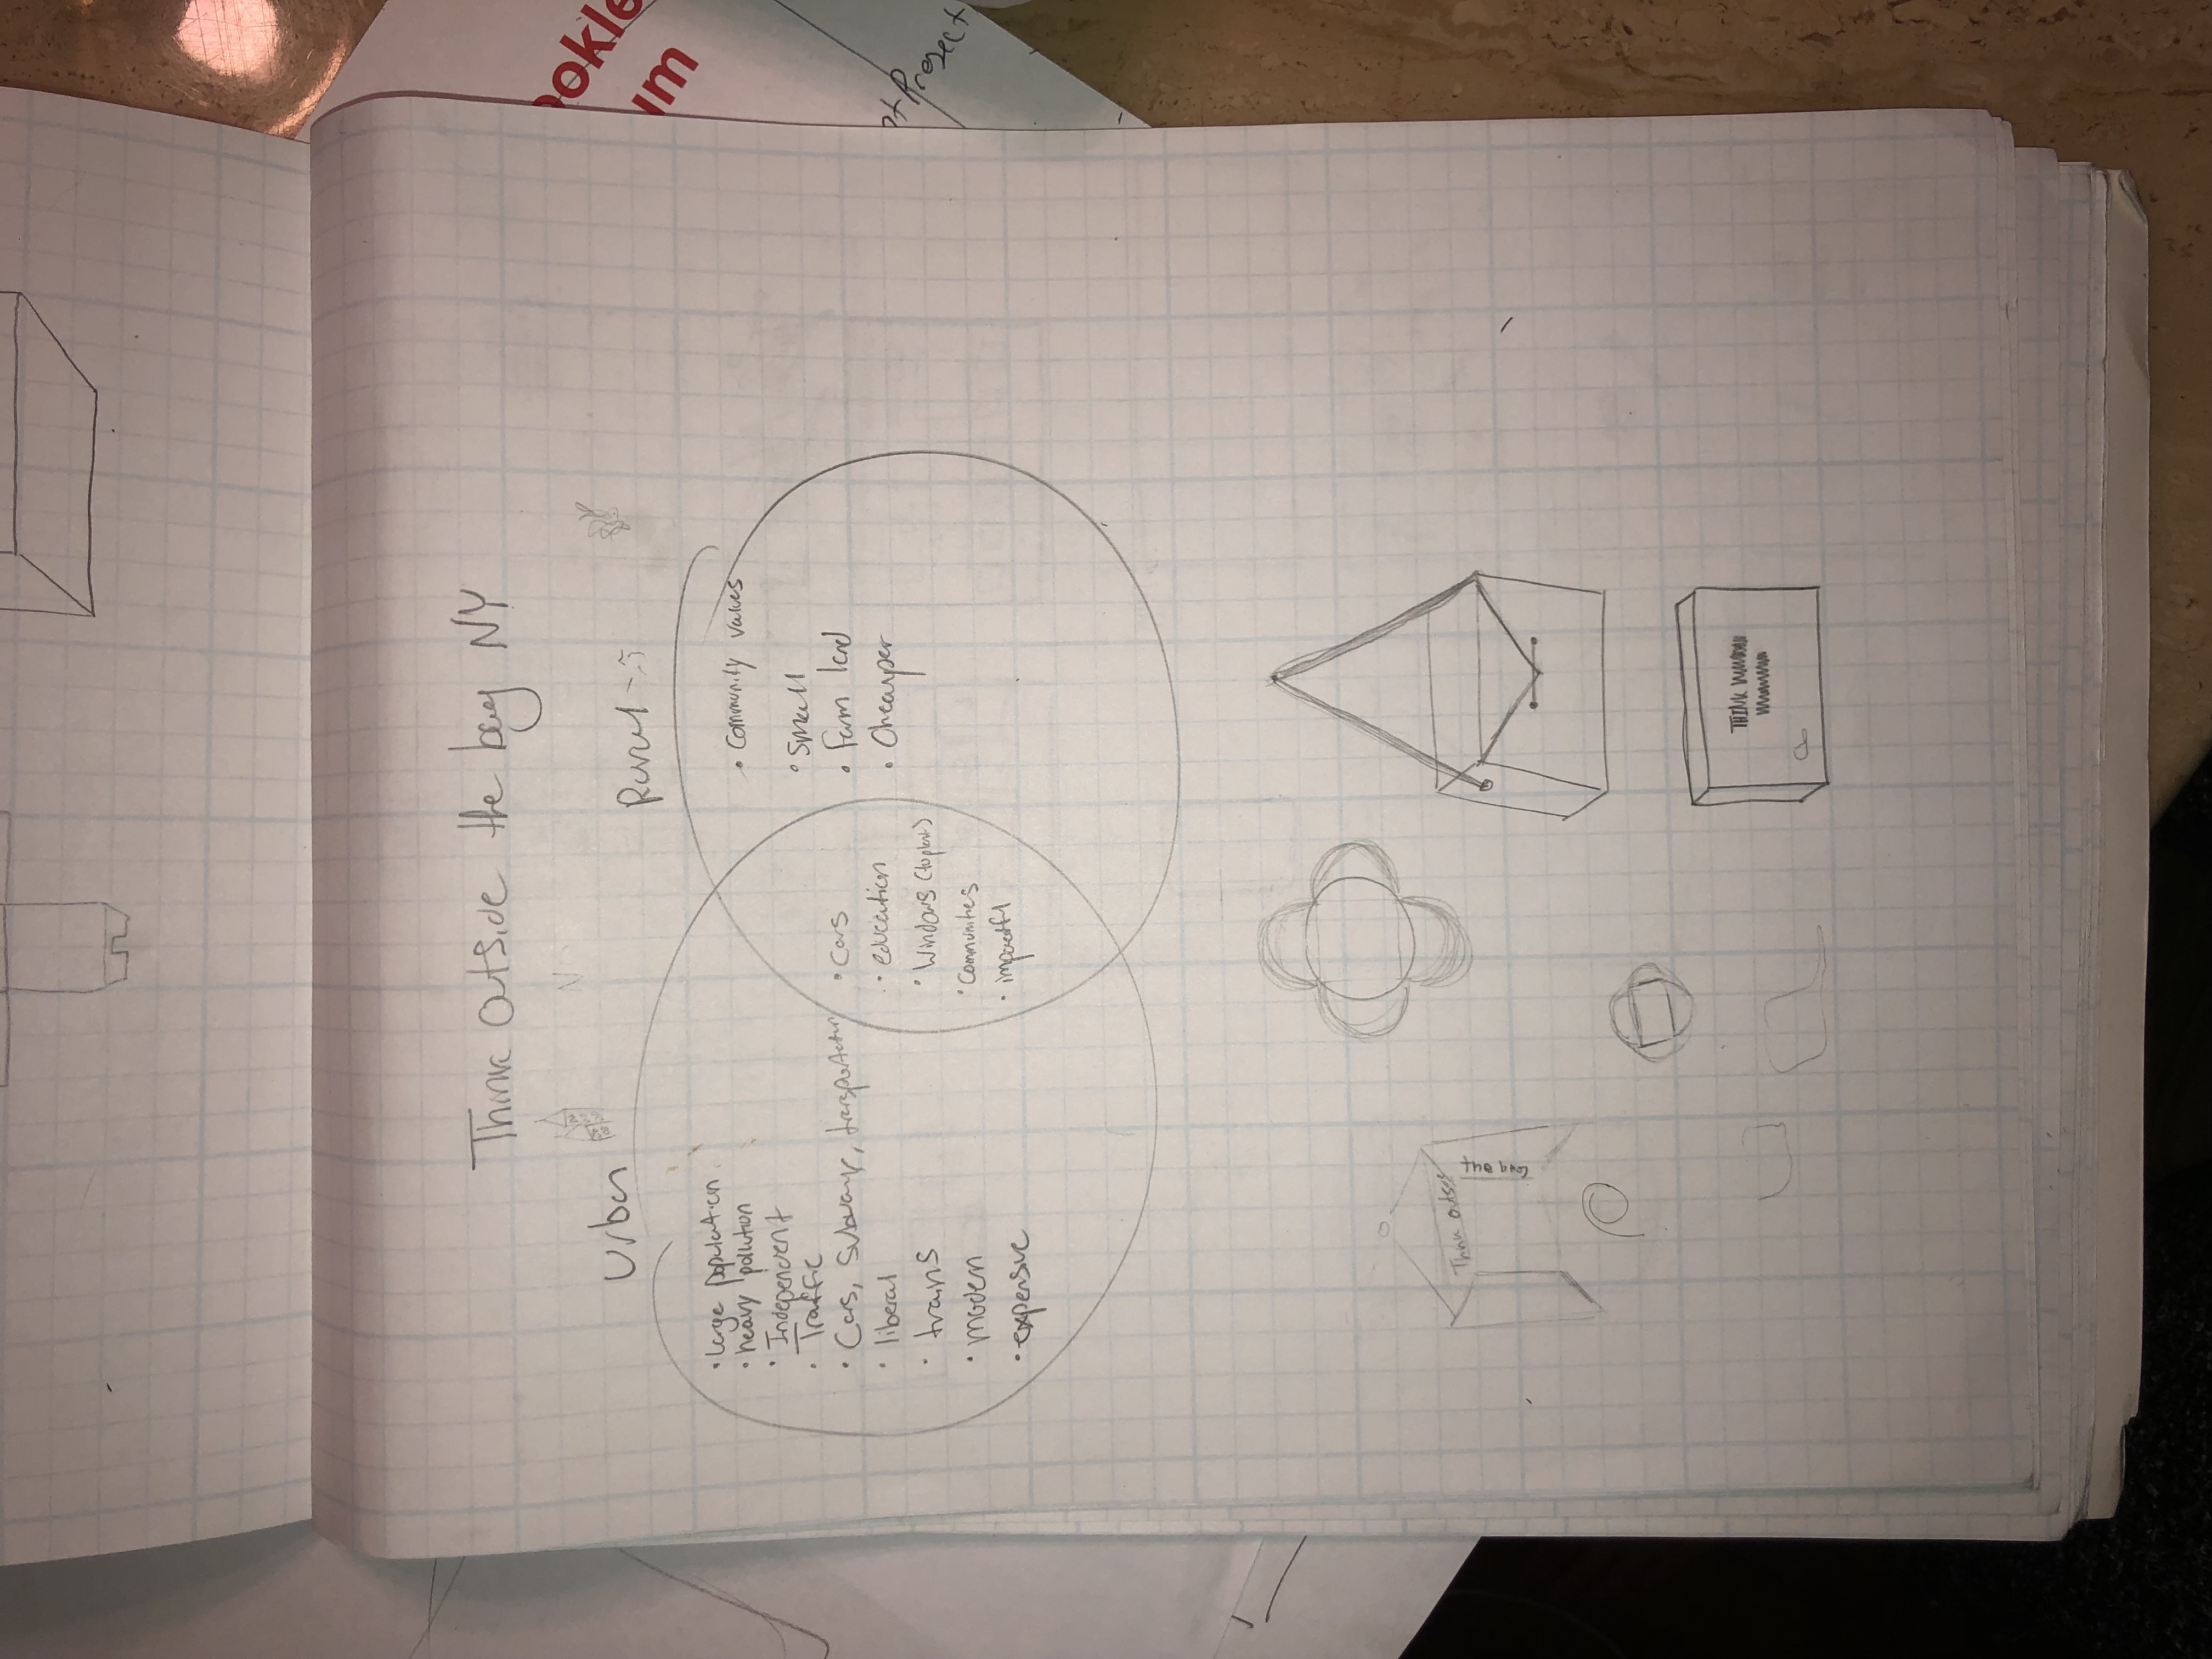 Think Outside the bag NY
Urban
Rural
• large population
• heavy pollution
• Independent
• Traffic
• Cars, Subways, transportation
• liberal
• trains
• modern
• expensive
• Cars
• education
• Windows (to plant)
• Communities
• impactful
• Community values
• Small
• Farm land
• Cheaper
Think outside
the bag
THINK
ookle
um
Project